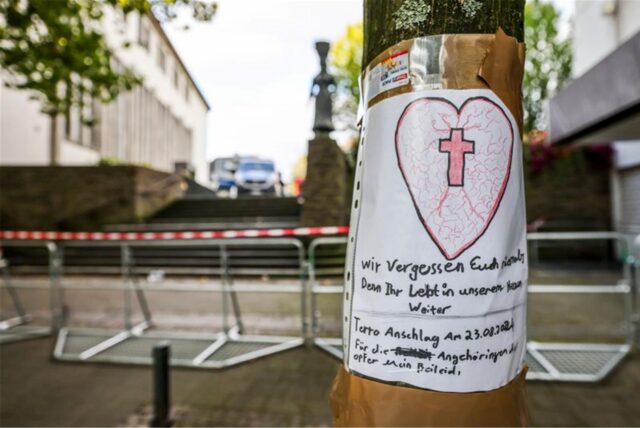 Wir Vergessen Euch niemals
Denn Ihr Lebt in unserem Herzen
Weiter
Terro Anschlag Am 23.08.2024
Für die Angehöringen der
opfer Mein Beileid,